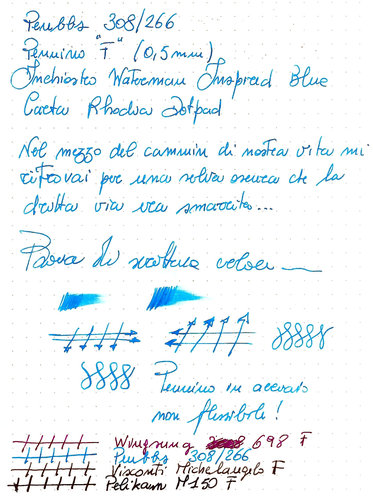 Penbbs 308/266
Pennino "F" (0,5mm)
Inchiostro Waterman Inspired Blue
Carta Rhodia Dotpad
Nel mezzo del cammin di nostra vita mi
ritrovai per una selva oscura che la
diritta via era smarrita...
Prova di scrittura veloce
Pennino in acciaio
non flessibile!
Wingsung 698 F
Penbbs 308/266
Visconti Michelangelo F
Pelikan M150 F